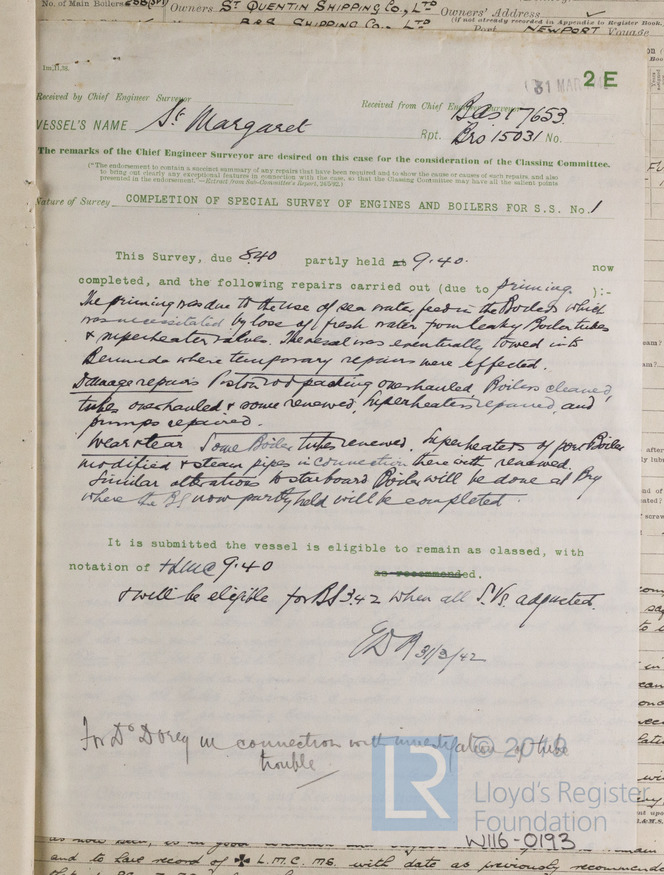 No. of Main Boilers
Owners ST QUENTIN SHIPPING CO., LTD
Owners' Address
B&S SHIPPING CO., LTD
(if not already recorded in Appendix to Register Book.
Port NEWPORT Voyage
31 MAR
2 E
Received by Chief Engineer Surveyor
Received from Chief Engineer Surveyor
17653
VESSEL'S NAME St Margaret
Rpt. Bro 15031 No.
The remarks of the Chief Engineer Surveyor are desired on this case for the consideration of the Classing Committee.
("The endorsement to contain a succinct summary of any repairs that have been required and to show the cause or causes of such repairs, and also
to bring out clearly any exceptional features in connection with the case, so that the Classing Committee may have all the salient points
presented in the endorsement."—Extract from Sub-Committee's Report,
Nature of Survey COMPLETION OF SPECIAL SURVEY OF ENGINES AND BOILERS FOR S.S. No. 1
This Survey, due 8.40 partly held 9.40. now
completed, and the following repairs carried out (due to priming. ):-
The priming was due to the use of sea water feed in the Boilers which
was necessitated by loss of fresh water from leaky Boiler tubes
& superheater valves. The vessel was eventually towed into
Bermuda where temporary repairs were effected.
Damage repairs Piston rod packing overhauled, Boilers cleaned,
tubes overhauled & some renewed, superheaters repaired, and
pumps repaired.
Wear & tear Some Boiler tubes renewed. Superheaters of port Boiler
modified & steam pipes in connection therewith renewed.
Similar alterations to starboard Boiler will be done at Bry
where the BS now partly held will be completed.
It is submitted the vessel is eligible to remain as classed, with
notation of +LMC 9.40 as recommended.
& will be eligible for BS 3.42 when all S.Vs. adjusted.
31/3/42
For Dr Dorey in connection with investigation of tube
trouble
LR © 2018
Lloyd's Register
Foundation
W116-0193
and to have record of ✠ L.M.C. MS. with date as previously recommended